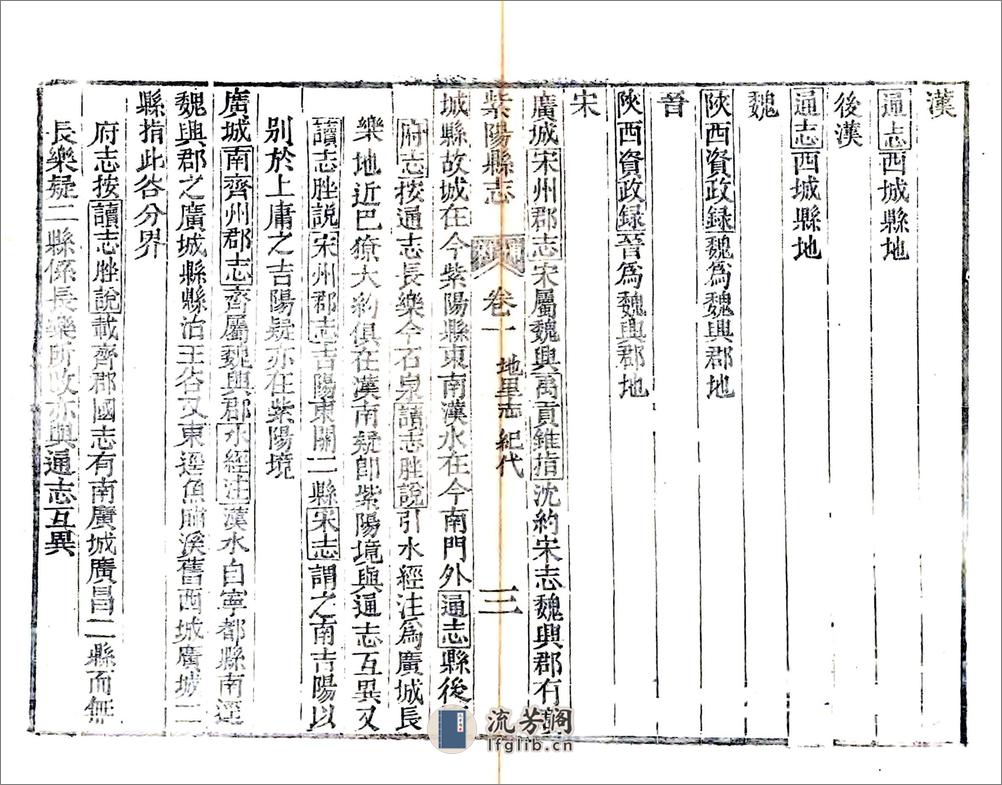 漢
通志西城縣地
後漢
通志西城縣地
魏
陝西資政録魏爲魏興郡地
晉
陝西資政録晉爲魏興郡地
宋
廣城宋州郡志宋屬魏興禹貢錐指沈約宋志魏興郡有
紫陽縣志 卷一 地里志 紀代 三
城縣故城在今紫陽縣東南漢水在今南門外通志縣後
府志按通志長樂今石泉讀志脞說引水經注爲廣城長
樂地近巴獠大約俱在漢南疑卽紫陽境與通志互異又
讀志脞說宋州郡志吉陽東關二縣宋志謂之南吉陽以
別於上庸之吉陽疑亦在紫陽境
廣城南齊州郡志齊屬魏興郡水經注漢水自寧都縣南逕
魏興郡之廣城縣縣治王谷又東逕魚脯溪舊西城廣城二
縣指此谷分界
府志按讀志脞說載齊郡國志有南廣城廣昌二縣而無
長樂疑二縣係長樂所改亦與通志互異
流芳閣
lfglib.cn